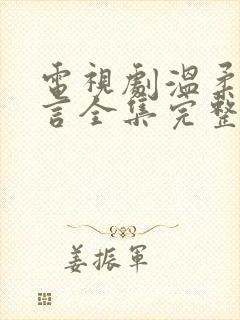 電視劇溫柔
言全集完整
姜振軍